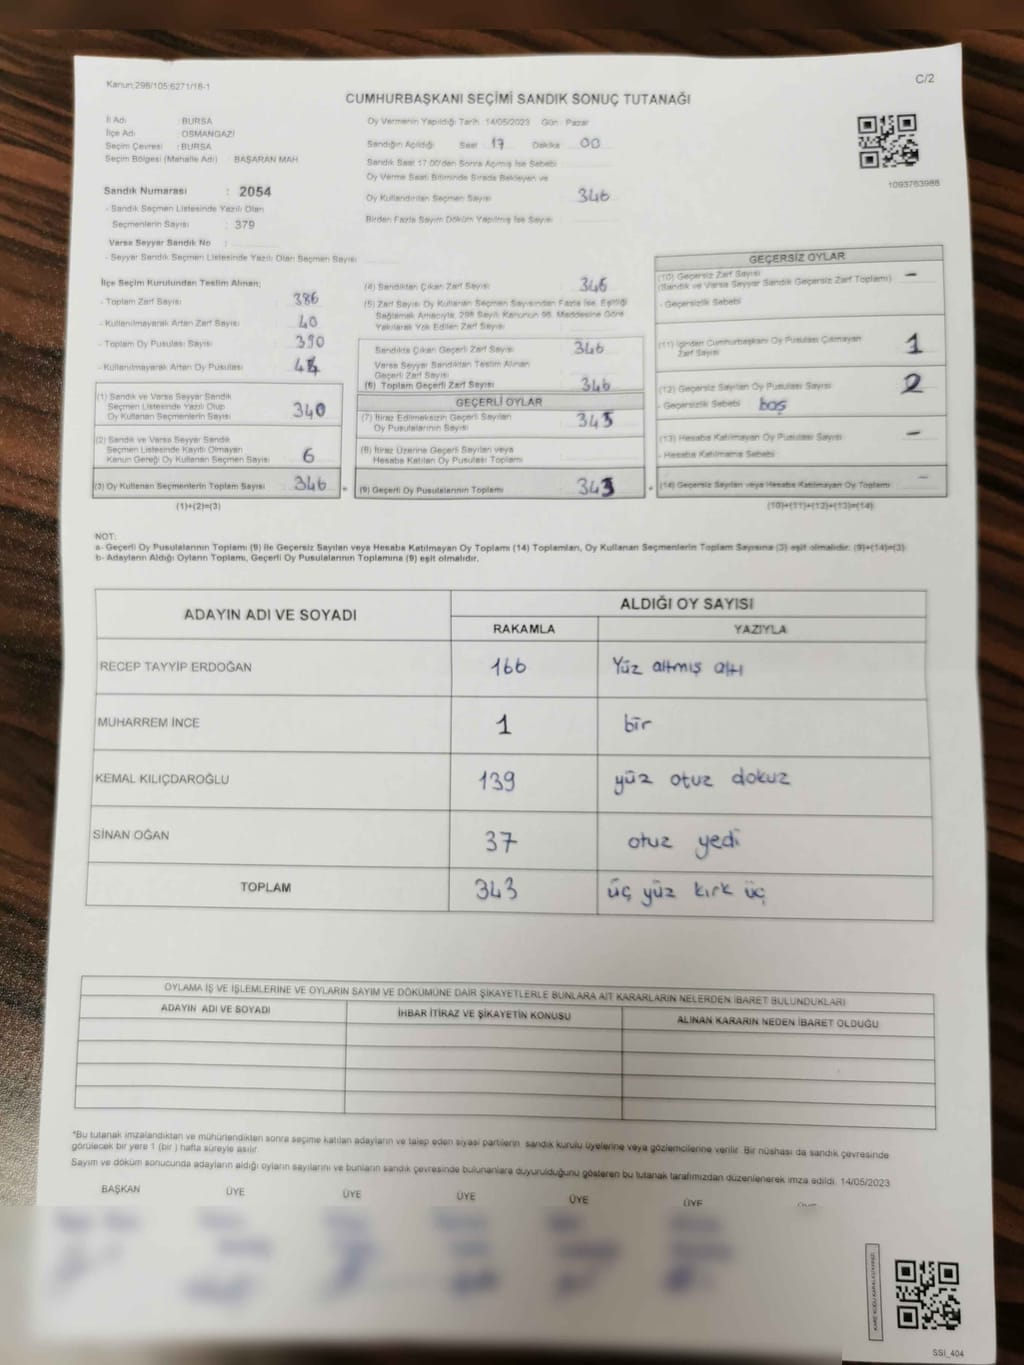 Kanun:298/105;6271/16-1
C/2
CUMHURBAŞKANI SEÇİMİ SANDIK SONUÇ TUTANAĞI
İl Adı : BURSA
İlçe Adı : OSMANGAZİ
Seçim Çevresi : BURSA
Seçim Bölgesi (Mahalle Adı) : BAŞARAN MAH
Oy Vermenin Yapıldığı Tarih: 14/05/2023 Gün: Pazar
Sandığın Açıldığı Saat 17 Dakika 00
Sandık Saat 17.00'den Sonra Açılmış İse Sebebi
Oy Verme Saati Bitiminde Sırada Bekleyen ve
Oy Kullandırılan Seçmen Sayısı 346
Birden Fazla Sayım Döküm Yapılmış İse Sayısı
1093763988
Sandık Numarası : 2054
- Sandık Seçmen Listesinde Yazılı Olan
Seçmenlerin Sayısı : 379
Varsa Seyyar Sandık No :
- Seyyar Sandık Seçmen Listesinde Yazılı Olan Seçmen Sayısı
İlçe Seçim Kurulundan Teslim Alınan;
- Toplam Zarf Sayısı 386
- Kullanılmayarak Artan Zarf Sayısı 40
- Toplam Oy Pusulası Sayısı 390
- Kullanılmayarak Artan Oy Pusulası
(1) Sandık ve Varsa Seyyar Sandık
Seçmen Listesinde Yazılı Olup
Oy Kullanan Seçmenlerin Sayısı 340
(2) Sandık ve Varsa Seyyar Sandık
Seçmen Listesinde Kayıtlı Olmayan
Kanun Gereği Oy Kullanan Seçmen Sayısı 6
(3) Oy Kullanan Seçmenlerin Toplam Sayısı 346
(1)+(2)=(3)
(4) Sandıktan Çıkan Zarf Sayısı 346
(5) Zarf Sayısı Oy Kullanan Seçmen Sayısından Fazla İse, Eşitliği
Sağlamak Amacıyla, 298 Sayılı Kanunun 98. Maddesine Göre
Yakılarak Yok Edilen Zarf Sayısı
Sandıkta Çıkan Geçerli Zarf Sayısı 346
Varsa Seyyar Sandıktan Teslim Alınan
Geçerli Zarf Sayısı
(6) Toplam Geçerli Zarf Sayısı 346
GEÇERLİ OYLAR
(7) İtiraz Edilmeksizin Geçerli Sayılan
Oy Pusulalarının Sayısı 343
(8) İtiraz Üzerine Geçerli Sayılan veya
Hesaba Katılan Oy Pusulası Toplamı
(9) Geçerli Oy Pusulalarının Toplamı 343
GEÇERSİZ OYLAR
(10) Geçersiz Zarf Sayısı –
(Sandık ve Varsa Seyyar Sandık Geçersiz Zarf Toplamı)
- Geçersizlik Sebebi
(11) İçinden Cumhurbaşkanı Oy Pusulası Çıkmayan
Zarf Sayısı 1
(12) Geçersiz Sayılan Oy Pusulası Sayısı 2
- Geçersizlik Sebebi boş
(13) Hesaba Katılmayan Oy Pusulası Sayısı –
- Hesaba Katılmama Sebebi
(14) Geçersiz Sayılan veya Hesaba Katılmayan Oy Toplamı –
(10)+(11)+(12)+(13)=(14)
NOT:
a- Geçerli Oy Pusulalarının Toplamı (9) İle Geçersiz Sayılan veya Hesaba Katılmayan Oy Toplamı (14) Toplamları, Oy Kullanan Seçmenlerin Toplam Sayısına (3) eşit olmalıdır. (9)+(14)=(3)
b- Adayların Aldığı Oyların Toplamı, Geçerli Oy Pusulalarının Toplamına (9) eşit olmalıdır.
ADAYIN ADI VE SOYADI
ALDIĞI OY SAYISI
RAKAMLA YAZIYLA
RECEP TAYYİP ERDOĞAN 166 Yüz altmış altı
MUHARREM İNCE 1 bir
KEMAL KILIÇDAROĞLU 139 yüz otuz dokuz
SİNAN OĞAN 37 otuz yedi
TOPLAM 343 üç yüz kırk üç
OYLAMA İŞ VE İŞLEMLERİNE VE OYLARIN SAYIM VE DÖKÜMÜNE DAİR ŞİKAYETLERLE BUNLARA AİT KARARLARIN NELERDEN İBARET BULUNDUKLARI
ADAYIN ADI VE SOYADI İHBAR İTİRAZ VE ŞİKAYETİN KONUSU ALINAN KARARIN NEDEN İBARET OLDUĞU
*Bu tutanak imzalandıktan ve mühürlendikten sonra seçime katılan adayların ve talep eden siyasi partilerin sandık kurulu üyelerine veya gözlemcilerine verilir. Bir nüshası da sandık çevresinde
görülecek bir yere 1 (bir) hafta süreyle asılır.
Sayım ve döküm sonucunda adayların aldığı oyların sayılarını ve bunların sandık çevresinde bulunanlara duyurulduğunu gösteren bu tutanak tarafımızdan düzenlenerek imza edildi. 14/05/2023
BAŞKAN ÜYE ÜYE ÜYE ÜYE ÜYE
SSI_404